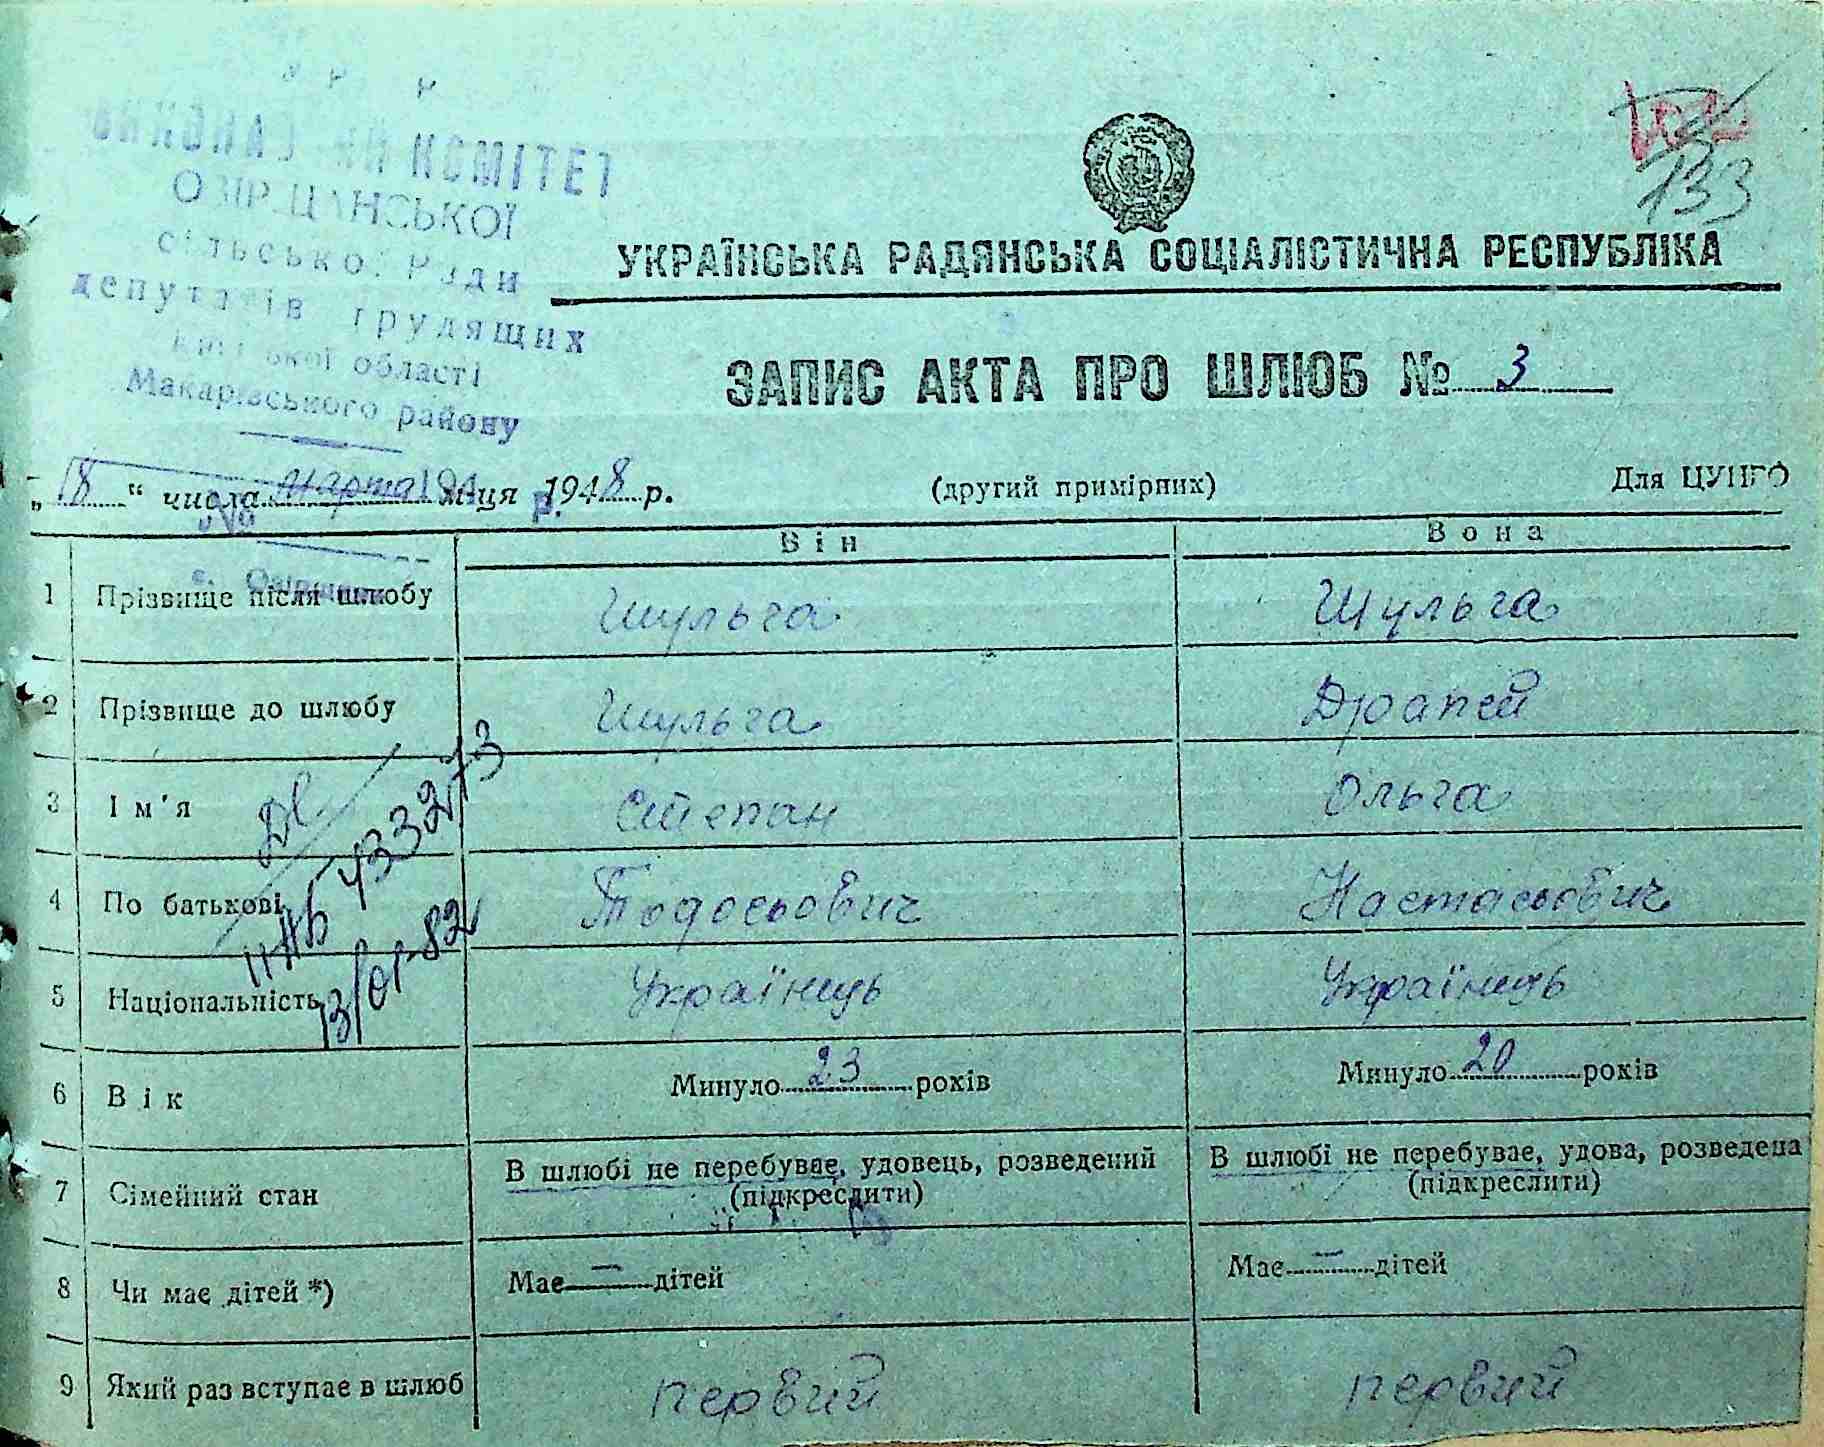 ВИКОНАВЧИЙ КОМІТЕТ
ОЗІРЩАНСЬКОЇ
сільської Ради
депутатів трудящих
Київської області
Макарівського району
133
УКРАЇНСЬКА РАДЯНСЬКА СОЦІАЛІСТИЧНА РЕСПУБЛІКА
ЗАПИС АКТА ПРО ШЛЮБ № 3
„18“ числа марта м-ця 1948 р. (другий примірник) Для ЦУНГО
Він Вона
1 Прізвище після шлюбу Шульга Шульга
2 Прізвище до шлюбу Шульга Драпей
3 Ім'я Степан Ольга
4 По батькові Тодосьович Настасьович
5 Національність Українець Українець
II-НБ 433273
13/01-82
6 Вік Минуло 23 років Минуло 20 років
7 Сімейний стан В шлюбі не перебуває, удовець, розведений (підкреслити) В шлюбі не перебуває, удова, розведена (підкреслити)
8 Чи має дітей *) Має — дітей Має — дітей
9 Який раз вступає в шлюб первий первий